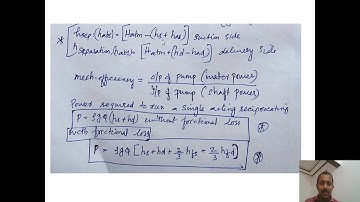 * hsep.(habs) = [Hatm - (hs + has)] suction side
hseparation(habs) = [Hatm + (hd - had)] delivery side
mech. efficiency = o/p of pump (water power)
I/p of pump (shaft power)
Power required to run a single acting reciprocating
P = ρgQ(hs + hd) without frictional loss
with frictional loss
P = ρgQ [hs + hd + 2/3 hfs + 2/3 hfd]